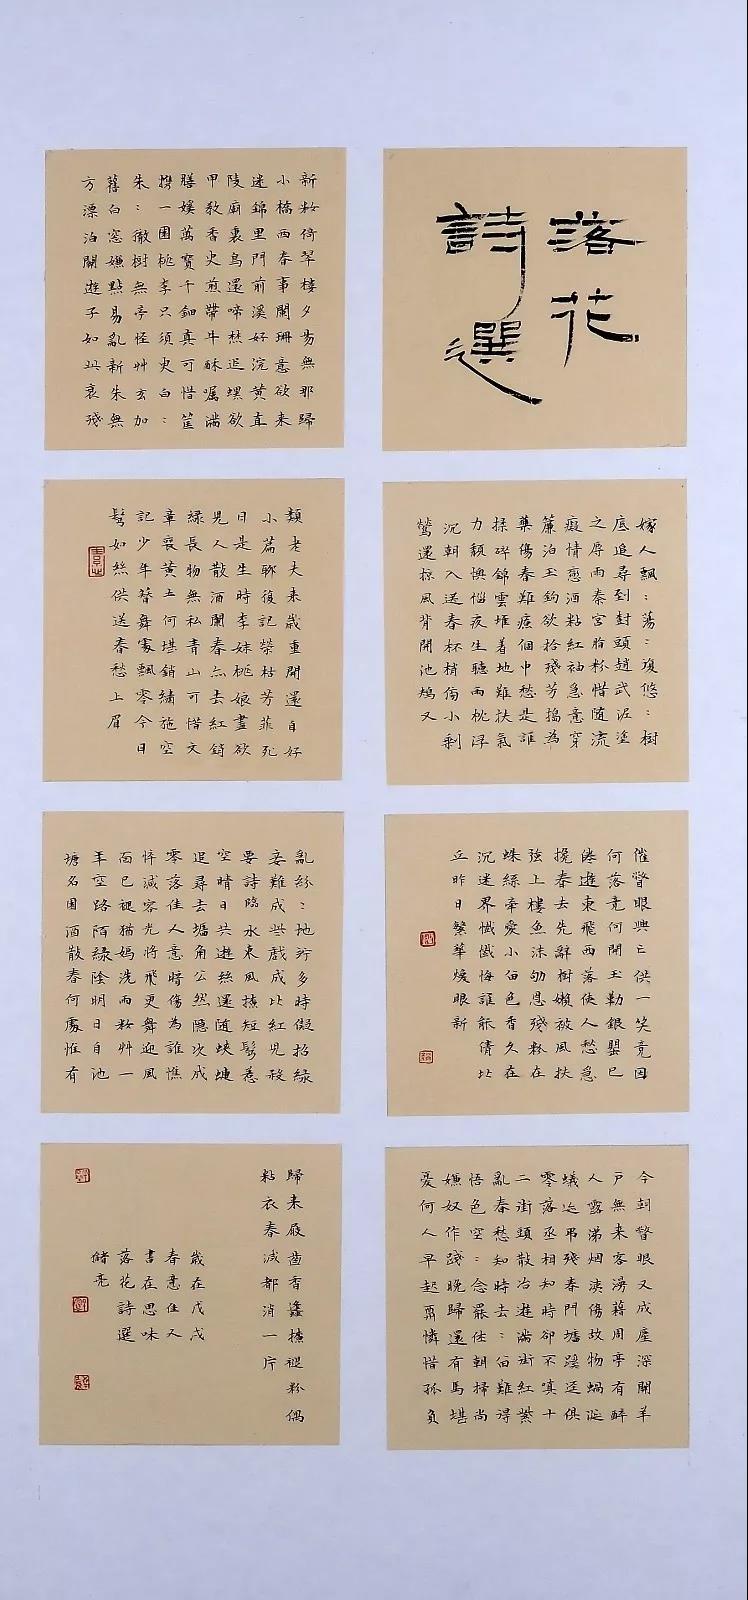 落花
詩選
新妝倚翠樓夕陽無那歸
小橋西春事闌珊意欲未
迷錦里門前溪好浣黃直
陵廟裏烏還啼愁追螺欲
甲教香史煎帶牛酥囑滿
膳嫔萬寶千鈿真可惜筐
携一圃桃李只須史白：
朱：徹樹無亭怪艸玄加
舊白窓嫌點易亂新朱無
方漂泊關遊子如此衰殘
嫁人飄：蕩：復悠：樹
底追尋到封頭趙武泥塗
之厚雨秦宮脂粉惜随流
癡情戀酒粘紅袖急意穿
簾泊玉鉤欲拾殘芳搗為
藥傷春難療個中愁是誰
揉碎錦雲堆着地難扶氣
力頹懊惱夜生聽雨枕浮
沉朝入送春杯梢傍小剩
鶯還掠風背開池鴆又
頹老大未歲重開還自好
小篇聊復記榮枯芳菲死
日是生時李妹桃娘盡欲
兒人散酒闌春亦去紅銷
綠長物無私青山可惜文
章喪黃土何堪錦繡施空
記少年簪舞處飄零今日
鬢如絲供送春愁上眉
催瞥眼興亡供一笑竟因
何落竟何開玉勒銀罌已
倦遊東飛西落使人愁急
挽春去先辭樹嬾被風扶
弦上樓魚沫劬息殘粉在
蛛絲牽愛小白色香久在
沉迷界懺懺悔誰能倩比
丘昨日繁華煖眼新
亂紛：地行多時儗招綠
妾難成些戲成比紅兒殺
要詩臨水東風撩短鬢惹
空晴日共遊絲還随蛺蝶
追尋去墻角公然隱次成
零落佳人意暗傷為誰憔
悴減容光將飛更舞迎風
面已褪猶嫣洗雨妝艸一
年空路陌綠陰明日自池
塘名園酒散春何處惟有
今到瞥眼又成塵深關羊
戸無来客湧藉周亭有醉
人露涕烟洟傷故物蝸涎
蟻迹弔殘春門墻蹊逕俱
零落丞相知時卻不嗔十
二街頭散冶遊滿街紅紫
亂春愁知時去：白難得
悟色空：念罷住朝掃尚
嫌奴作踐晚歸還有馬堪
憂何人早起肩憐惜孤負
歸来屐齒香蠭撩褪粉偶
粘衣春減都消一片
歲在戊戌
春意佳又
書在思味
落花詩選
儲亮